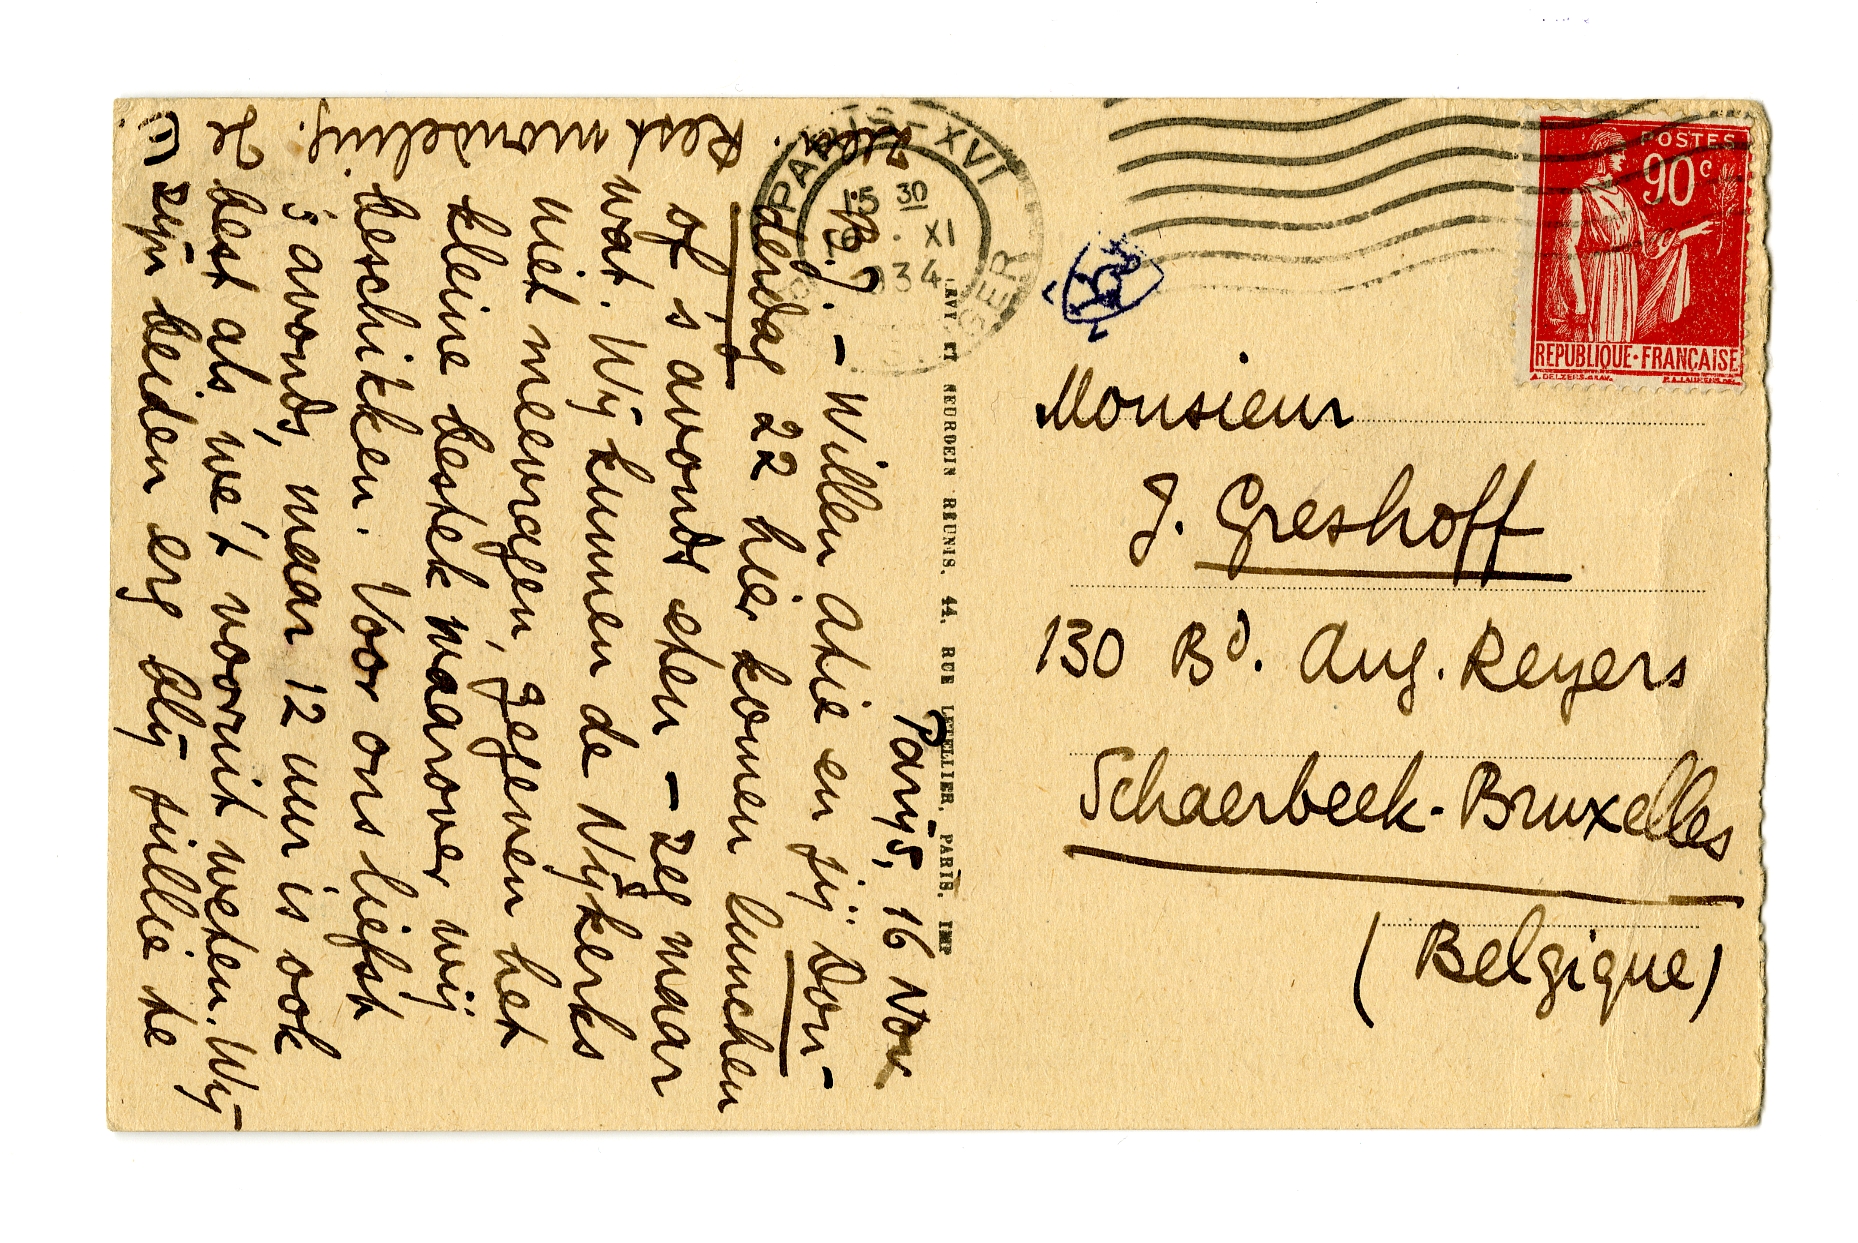 Parijs, 16 Nov
B. J. – Willen Atie en jij Don-
derdag 22 hier komen lunchen
of 's avonds eten – zeg maar
wat. Wij kunnen de Nijkerks
niet meevragen, gegeven het
kleine bestek waarover wij
beschikken. Voor ons liefst
's avonds, maar 12 uur is ook
best als we 't vooruit weten. Wij
zijn beiden erg blij jullie te
zien. Rest mondeling. Je
E
LEVY ET NEURDEIN REUNIS. 44, RUE LETELLIER, PARIS. IMP
PARIS-XVI
15 30
16 . XI
934
POSTES
90c
REPUBLIQUE·FRANÇAISE
Monsieur
J. Greshoff
130 Bd. Aug. Reyers
Schaerbeek-Bruxelles
(Belgique)